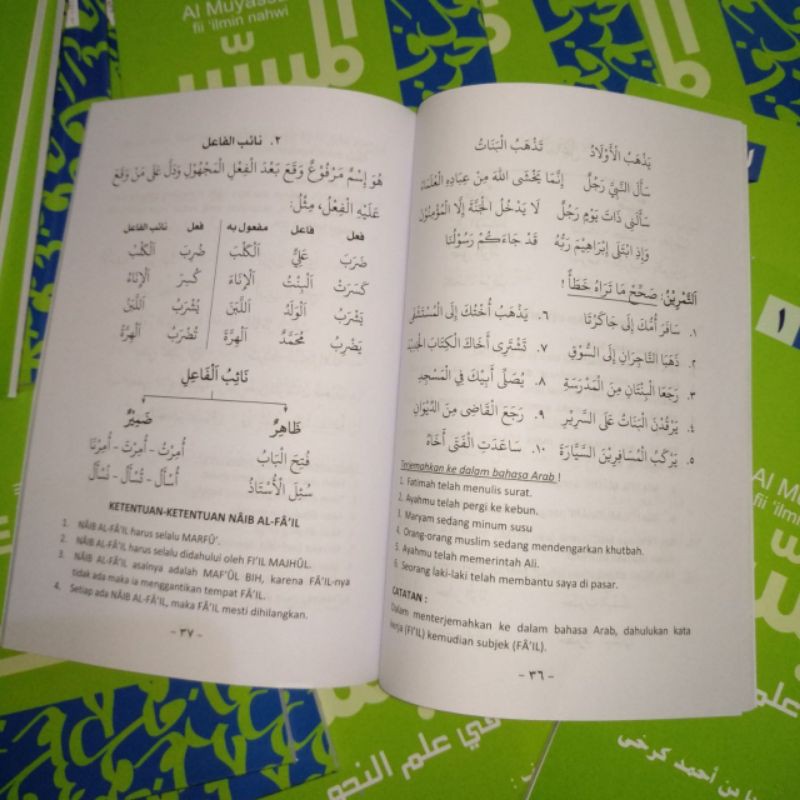 Al Muyass
fii 'ilmin nahwi
يَذْهَبُ الْأَوْلَادُ تَذْهَبُ الْبَنَاتُ
سَأَلَ النَّبِيَّ رَجُلٌ إِنَّمَا يَخْشَى اللهَ مِنْ عِبَادِهِ الْعُلَمَاءُ
سَأَلَنِي ذَاتَ يَوْمٍ رَجُلٌ لَا يَدْخُلُ الْجَنَّةَ إِلَّا الْمُؤْمِنُوْنَ
وَإِذِ ابْتَلَى إِبْرَاهِيْمَ رَبُّهُ قَدْ جَاءَكُمْ رَسُوْلُنَا
اَلتَّمْرِيْنُ: صَحِّحْ مَا تَرَاهُ خَطَأً !
١. سَافَرَ أُمُّكَ إِلَى جَاكَرْتَا ٦. يَذْهَبُ أُخْتُكَ إِلَى الْمُسْتَشْفَى
٢. ذَهَبَا التَّاجِرَانِ إِلَى السُّوْقِ ٧. تَشْتَرِى أَخَاكَ الْكِتَابَ الْجَدِيْدَ
٣. رَجَعَا الْبِنْتَانِ مِنَ الْمَدْرَسَةِ ٨. يُصَلِّى أَبِيْكَ فِي الْمَسْجِدِ
٤. يَرْقُدْنَ الْبَنَاتُ عَلَى السَّرِيْرِ ٩. رَجَعَ الْقَاضِى مِنَ الدِّيْوَانِ
٥. يَرْكَبُ الْمُسَافِرِيْنَ السَّيَّارَةَ ١٠. سَاعَدَتِ الْفَتَى أَخَاهُ
Terjemahkan ke dalam bahasa Arab !
1. Fatimah telah menulis surat.
2. Ayahmu telah pergi ke kebun.
3. Maryam sedang minum susu
4. Orang-orang muslim sedang mendengarkan khutbah.
5. Ayahmu telah memerintah Ali.
6. Seorang laki-laki telah membantu saya di pasar.
CATATAN :
Dalam menterjemahkan ke dalam bahasa Arab, dahulukan kata
kerja (FI'IL) kemudian subjek (FÂ'IL).
- ٣٦ -
٢. نائب الفاعل
هُوَ إِسْمٌ مَرْفُوْعٌ وَقَعَ بَعْدَ الْفِعْلِ الْمَجْهُوْلِ وَدَلَّ عَلَى مَنْ وَقَعَ
عَلَيْهِ الْفِعْلُ، مِثْلُ:
فعل فاعل مفعول به فعل نائب الفاعل
ضَرَبَ عَلِيٌّ اَلْكَلْبَ ضُرِبَ اَلْكَلْبُ
كَسَرَتْ اَلْبِنْتُ اَلْإِنَاءَ كُسِرَ اَلْإِنَاءُ
يَشْرَبُ اَلْوَلَدُ اَللَّبَنَ يُشْرَبُ اَللَّبَنُ
يَضْرِبُ مُحَمَّدٌ اَلْهِرَّةَ تُضْرَبُ اَلْهِرَّةُ
نَائِبُ اَلْفَاعِلِ
ظَاهِرٌ ضَمِيْرٌ
فُتِحَ الْبَابُ أُمِرْتُ - أُمِرْتَ - أُمِرْنَا
سُئِلَ الْأُسْتَاذُ أُسْأَلُ - تُسْأَلُ - نُسْأَلُ
KETENTUAN-KETENTUAN NÂIB AL-FÂ'IL
1. NÂIB AL-FÂ'IL harus selalu MARFÛ'.
2. NÂIB AL-FÂ'IL harus selalu didahului oleh FI'IL MAJHÛL.
3. NÂIB AL-FÂ'IL asalnya adalah MAF'ÛL BIH, karena FÂ'IL-nya
tidak ada maka ia menggantikan tempat FÂ'IL.
4. Setiap ada NÂIB AL-FÂ'IL, maka FÂ'IL mesti dihilangkan.
- ٣٧ -
١
Al M
fii 'ilmin
في علم النحو
نا بن أحمد كرخى